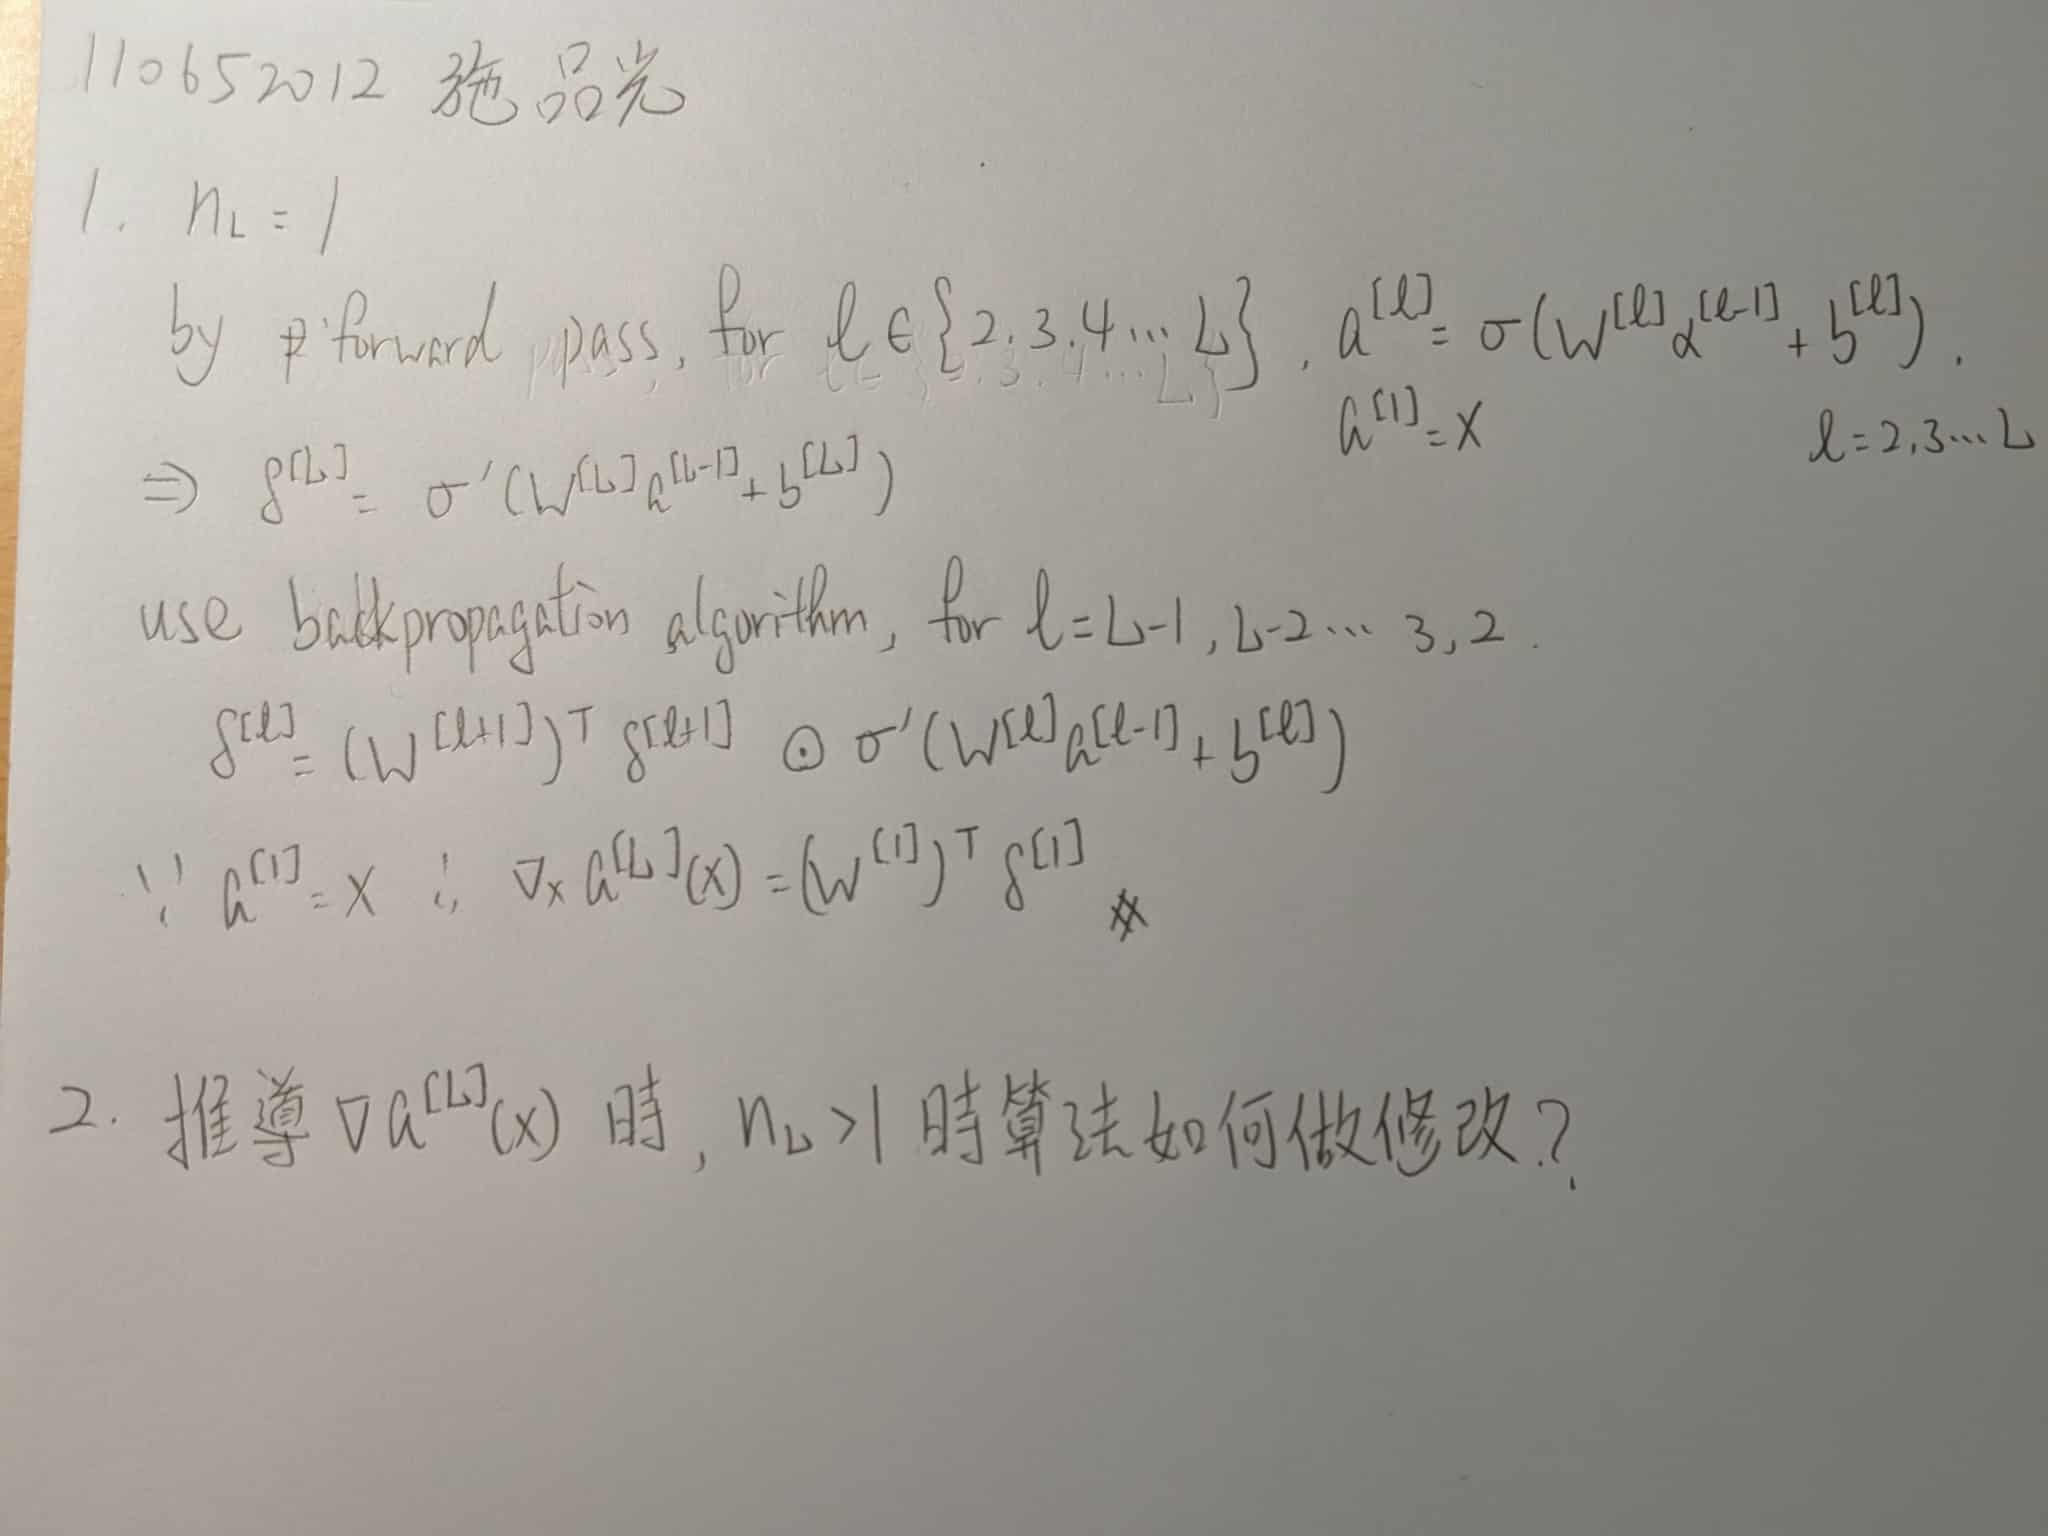 110652012 施品光
1. n_L = 1
by forward pass, for l ∈ {2.3.4... L}. a^[l] = σ(W^[l] a^[l-1] + b^[l]).
a^[1] = x l = 2,3... L
⇒ δ^[L] = σ'(W^[L] a^[L-1] + b^[L])
use backpropagation algorithm, for l = L-1, L-2... 3, 2.
δ^[l] = (W^[l+1])^T δ^[l+1] ⊙ σ'(W^[l] a^[l-1] + b^[l])
∵ a^[1] = x ∴ ∇_x a^[L](x) = (W^[1])^T δ^[1] #
2. 推導 ∇a^[L](x) 時, n_L > 1 時算法如何做修改?